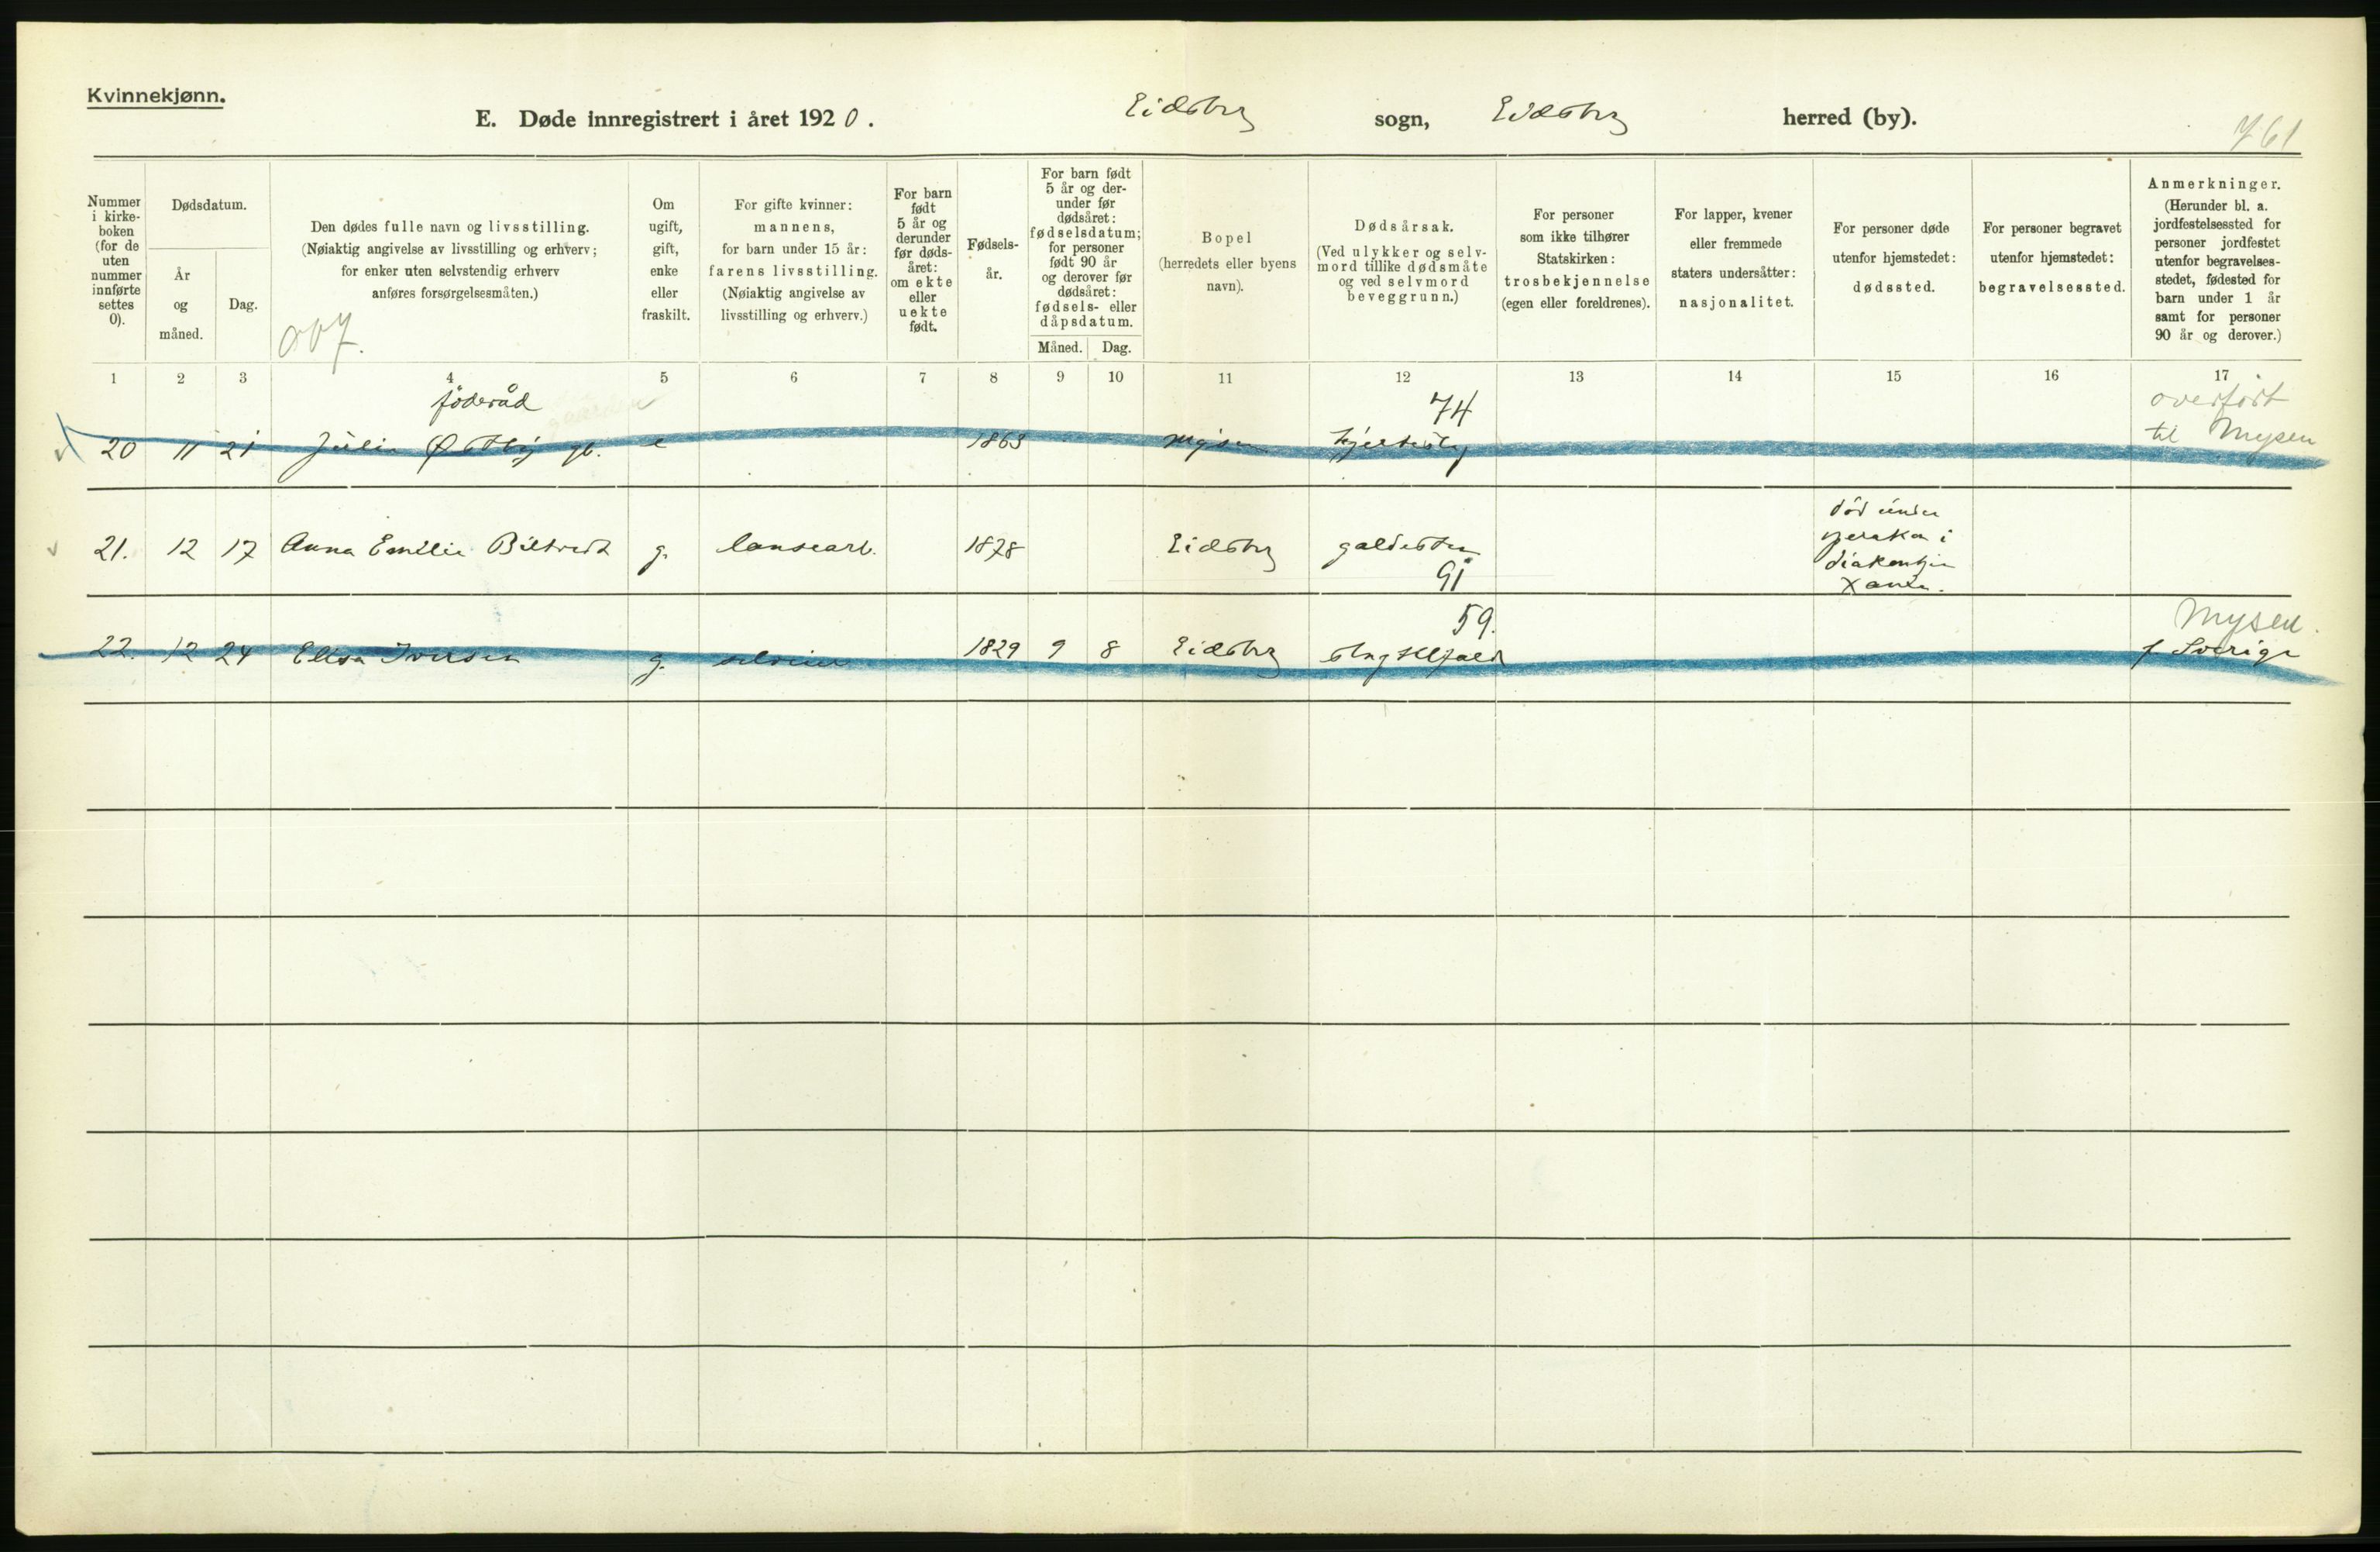 Kvinnekjønn.
E. Døde innregistrert i året 1920. Eidsbrg sogn, Eidsbrg herred (by).
761
Nummer
i kirke-
boken
(for de
uten
nummer
innførte
settes
0).
Dødsdatum.
År
og
måned.
Dag.
Den dødes fulle navn og livsstilling.
(Nøiaktig angivelse av livsstilling og erhverv;
for enker uten selvstendig erhverv
anføres forsørgelsesmåten.)
Om
ugift,
gift,
enke
eller
fraskilt.
For gifte kvinner:
mannens,
for barn under 15 år:
farens livsstilling.
(Nøiaktig angivelse av
livsstilling og erhverv.)
For barn
født
5 år og
derunder
før døds-
året:
om ekte
eller
uekte
født.
Fødsels-
år.
For barn født
5 år og der-
under før
dødsåret:
fødselsdatum;
for personer
født 90 år
og derover før
dødsåret:
fødsels- eller
dåpsdatum.
Måned. Dag.
Bopel
(herredets eller byens
navn).
Dødsårsak.
(Ved ulykker og selv-
mord tillike dødsmåte
og ved selvmord
beveggrunn.)
For personer
som ikke tilhører
Statskirken:
trosbekjennelse
(egen eller foreldrenes).
For lapper, kvener
eller fremmede
staters undersåtter:
nasjonalitet.
For personer døde
utenfor hjemstedet:
dødssted.
For personer begravet
utenfor hjemstedet:
begravelsessted.
Anmerkninger.
(Herunder bl. a.
jordfestelsessted for
personer jordfestet
utenfor begravelses-
stedet, fødested for
barn under 1 år
samt for personer
90 år og derover.)
1 2 3 4 5 6 7 8 9 10 11 12 13 14 15 16 17
føderåd 74 overført
20 11 21 Julie Østby gb. e 1863 Mysen til Mysen
21. 12 17 Anna Emilie g. 1878 Eidsbrg galdesten
død under
i
91
59. Mysen.
22. 12 24 Elisa Iversen g. 1829 9 8 Eidsbrg f Sverige